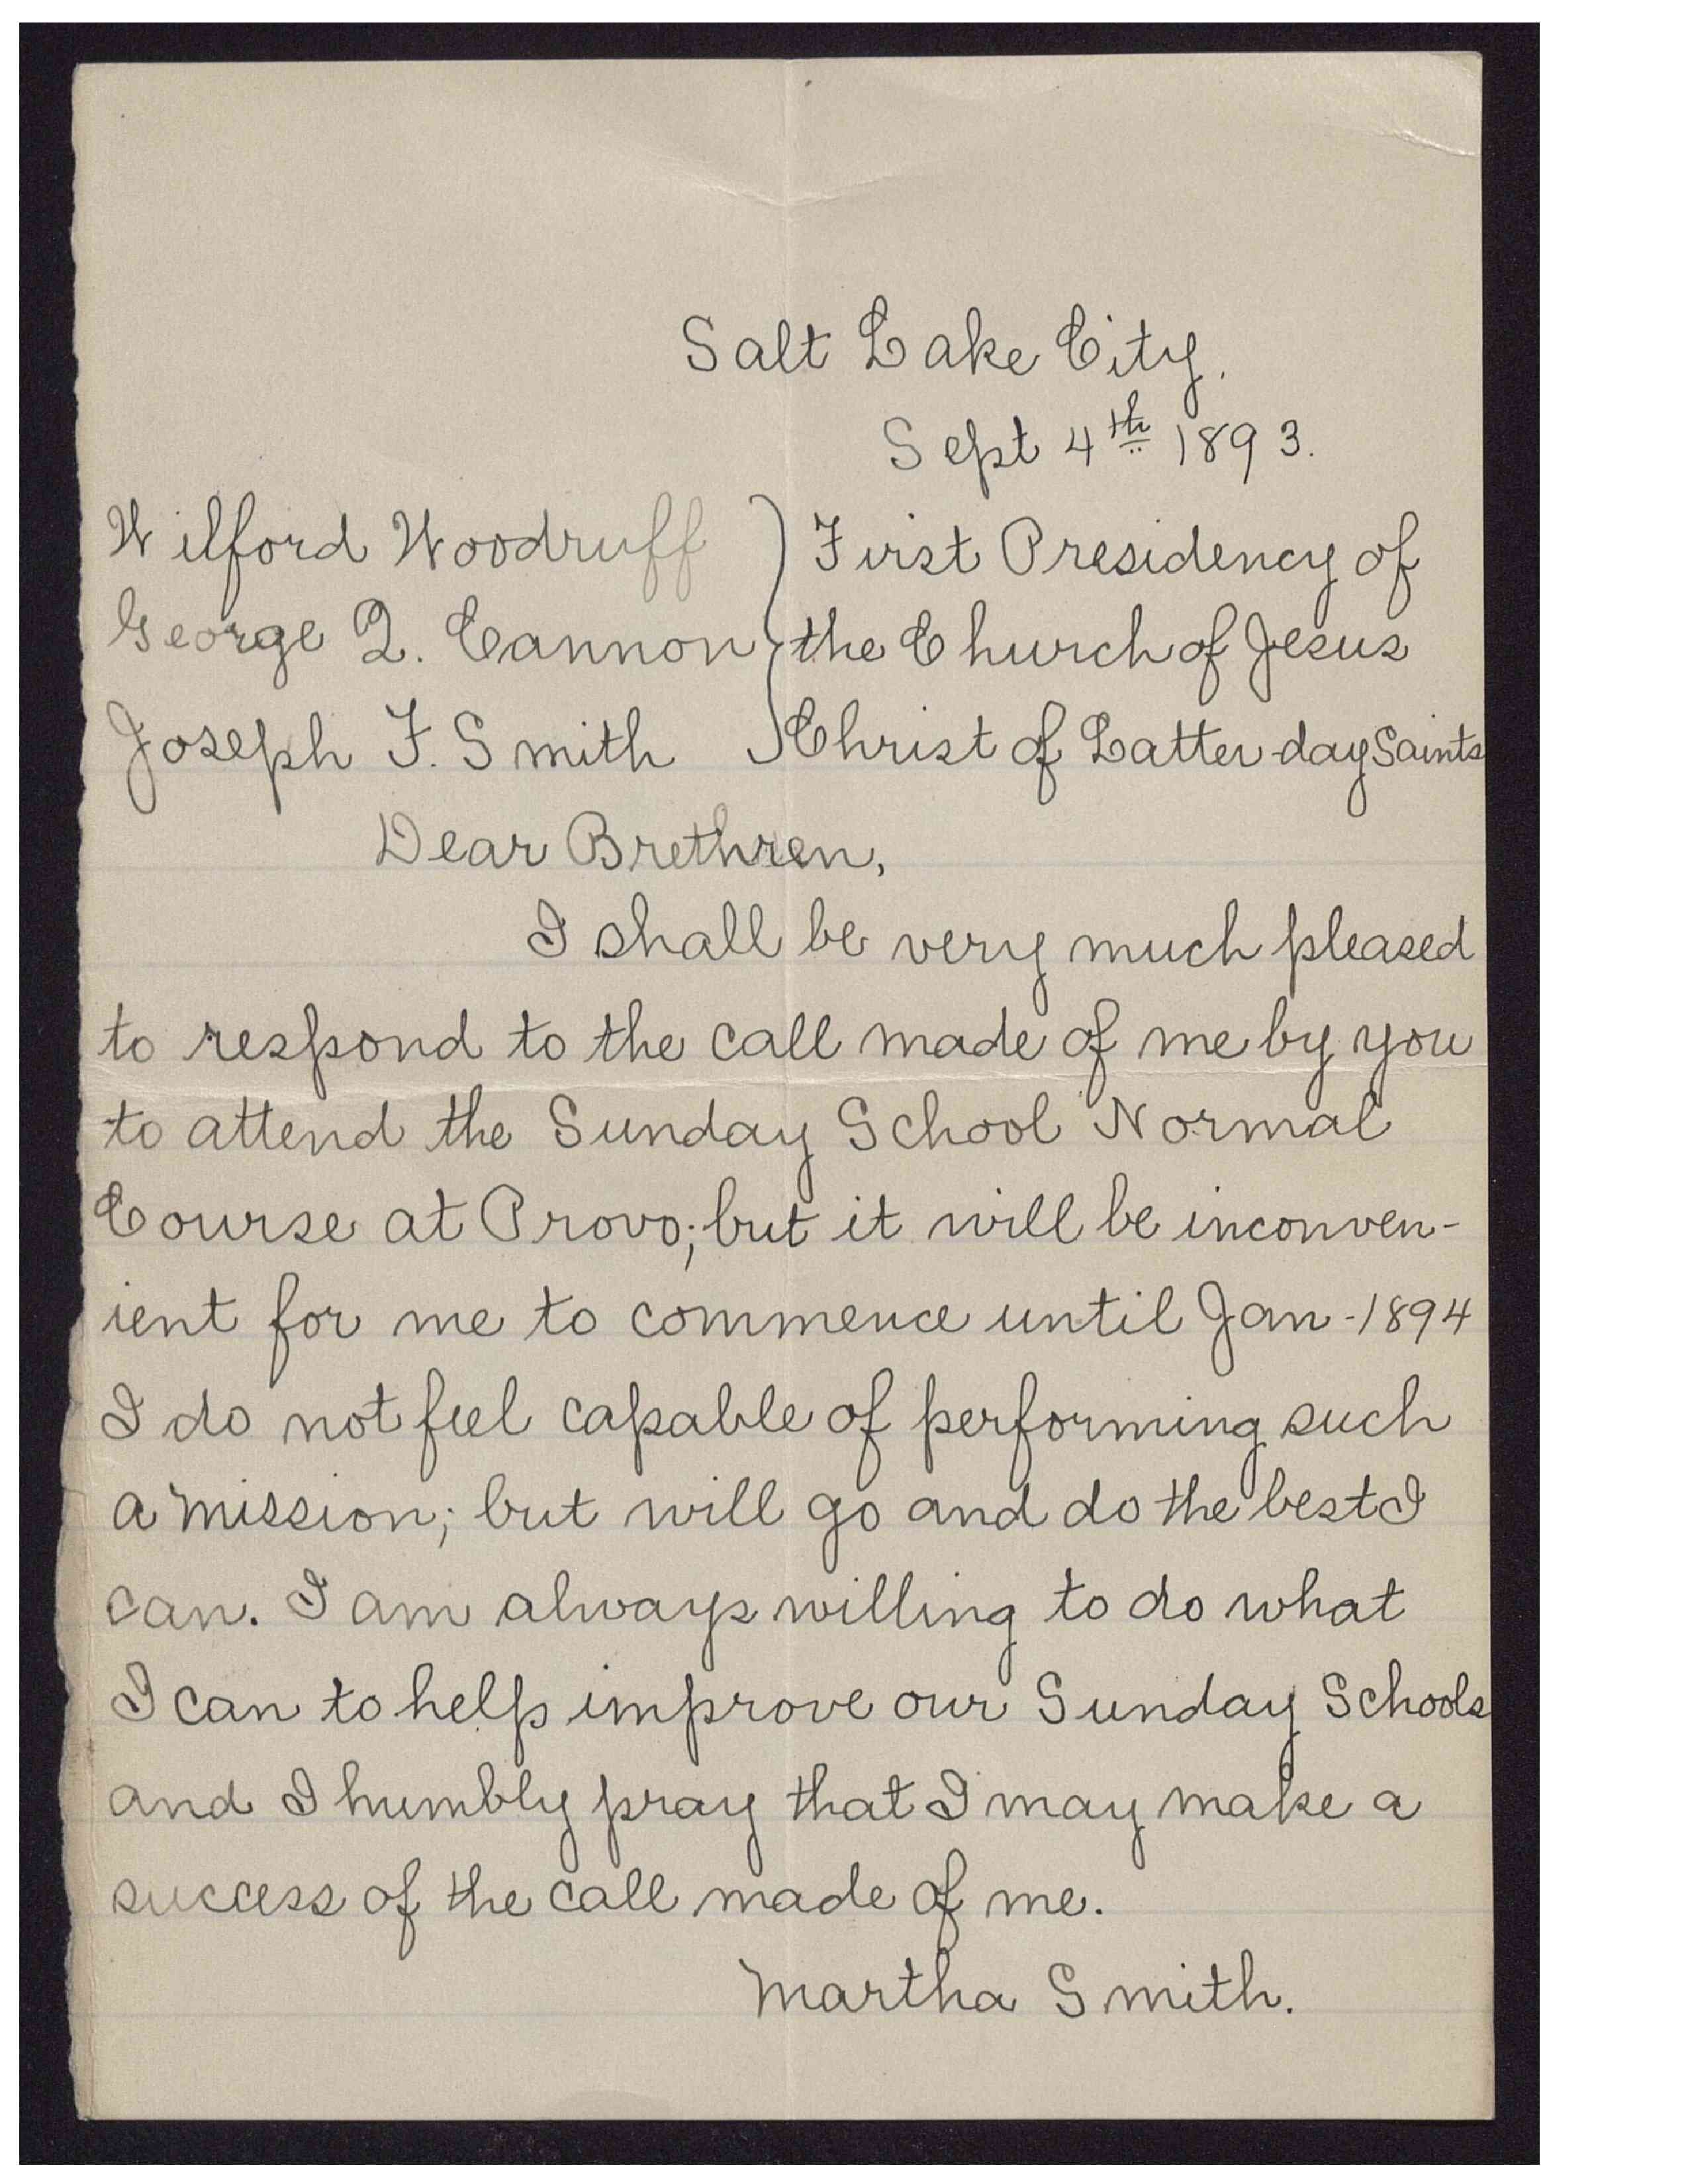 Salt Lake City.
Sept 4th 1893.
Wilford Woodruff } First Presidency of
George Q. Cannon } the Church of Jesus
Joseph F. Smith } Christ of Latter-day Saints
Dear Brethren,
I shall be very much pleased
to respond to the call made of me by you
to attend the Sunday School Normal
Course at Provo; but it will be inconven-
ient for me to commence until Jan - 1894
I do not feel capable of performing such
a mission; but will go and do the best I
can. I am always willing to do what
I can to help improve our Sunday Schools
and I humbly pray that I may make a
success of the call made of me.
Martha Smith.